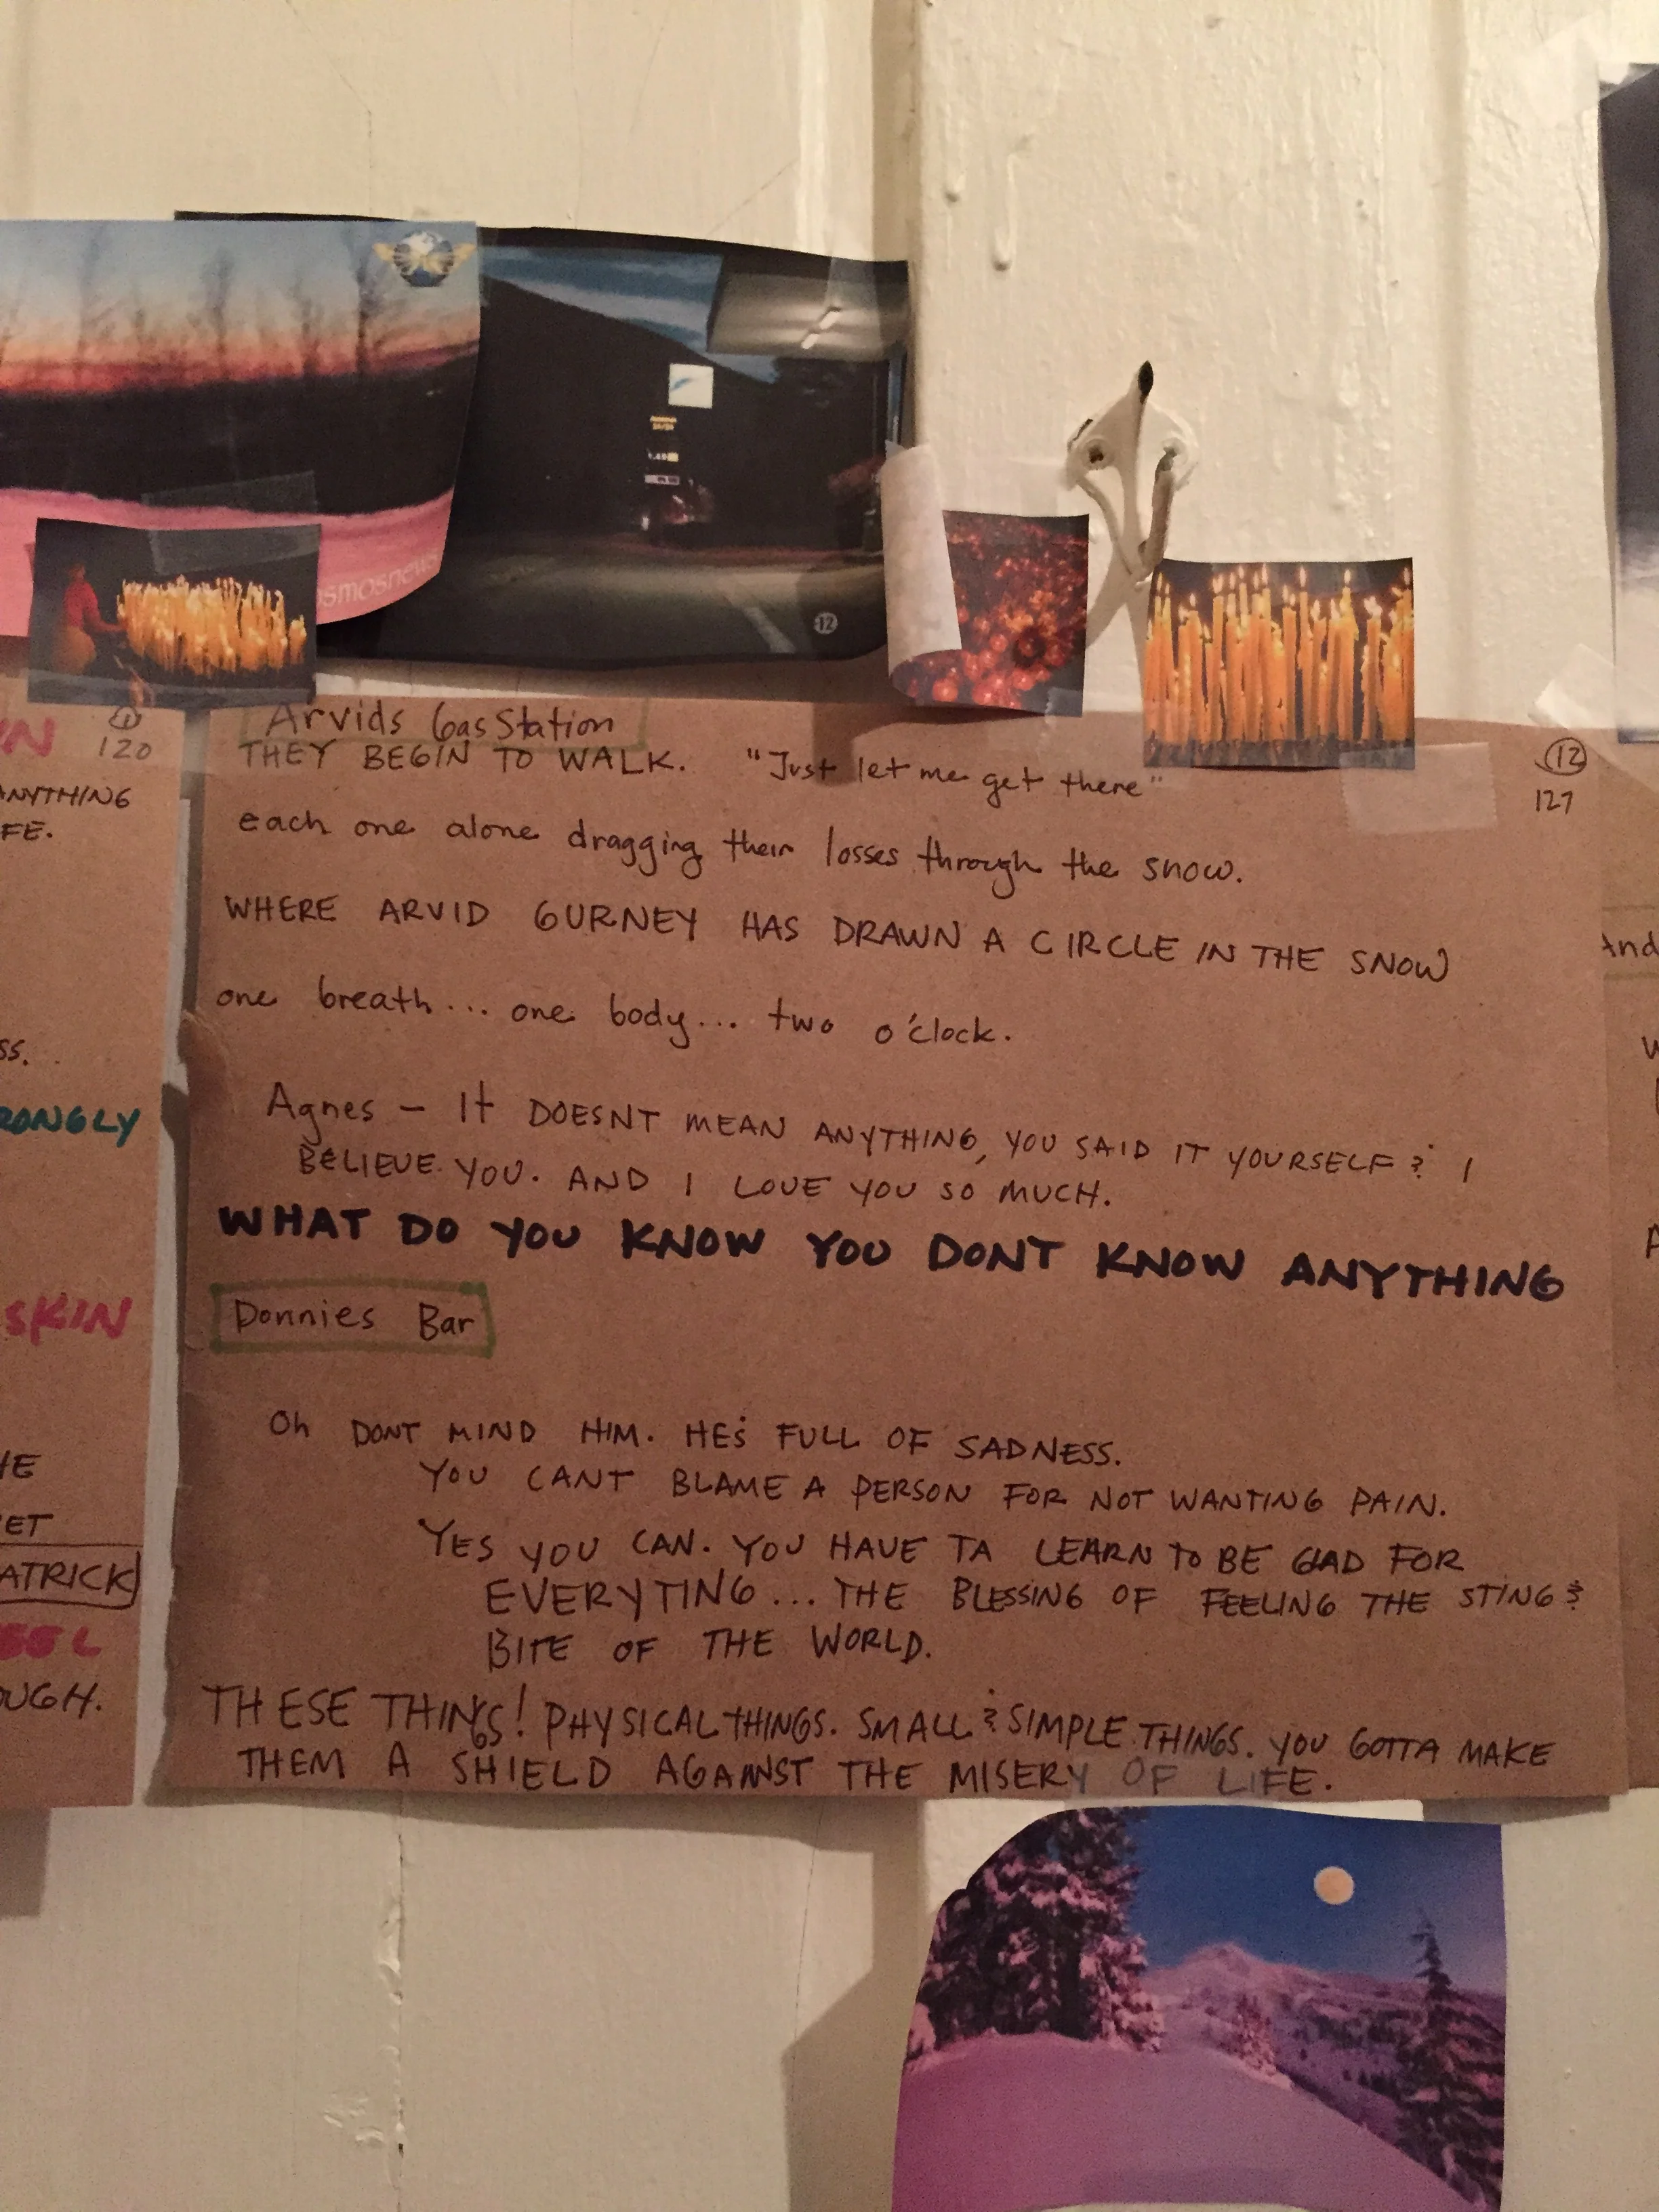 smosnews
12
N
120
ANYTHING
FE.
SS.
RONGLY
SKIN
HE
ET
ATRICK
EEL
OUGH.
Arvids Gas Station
12
127
THEY BEGIN TO WALK. "Just let me get there"
each one alone dragging their losses through the snow.
WHERE ARVID GURNEY HAS DRAWN A CIRCLE IN THE SNOW
one breath... one body... two o'clock.
Agnes - It DOESNT MEAN ANYTHING, YOU SAID IT YOURSELF & I
BELIEVE YOU. AND I LOVE YOU SO MUCH.
WHAT DO YOU KNOW YOU DONT KNOW ANYTHING
Donnies Bar
Oh DONT MIND HIM. HE'S FULL OF SADNESS.
YOU CANT BLAME A PERSON FOR NOT WANTING PAIN.
YES YOU CAN. YOU HAVE TA LEARN TO BE GLAD FOR
EVERYTING... THE BLESSING OF FEELING THE STING &
BITE OF THE WORLD.
THESE THINGS! PHYSICAL THINGS. SMALL & SIMPLE THINGS. YOU GOTTA MAKE
THEM A SHIELD AGAINST THE MISERY OF LIFE.
And
W
A